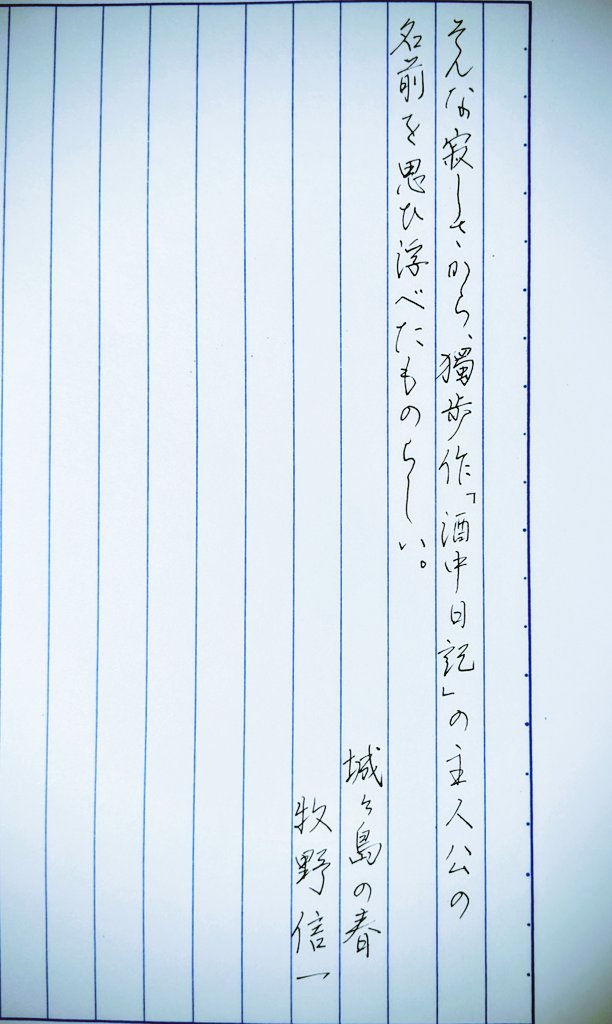 そんな寂しさから、獨歩作「酒中日記」の主人公の
名前を思ひ浮べたものらしい。
城ヶ島の春
牧野信一